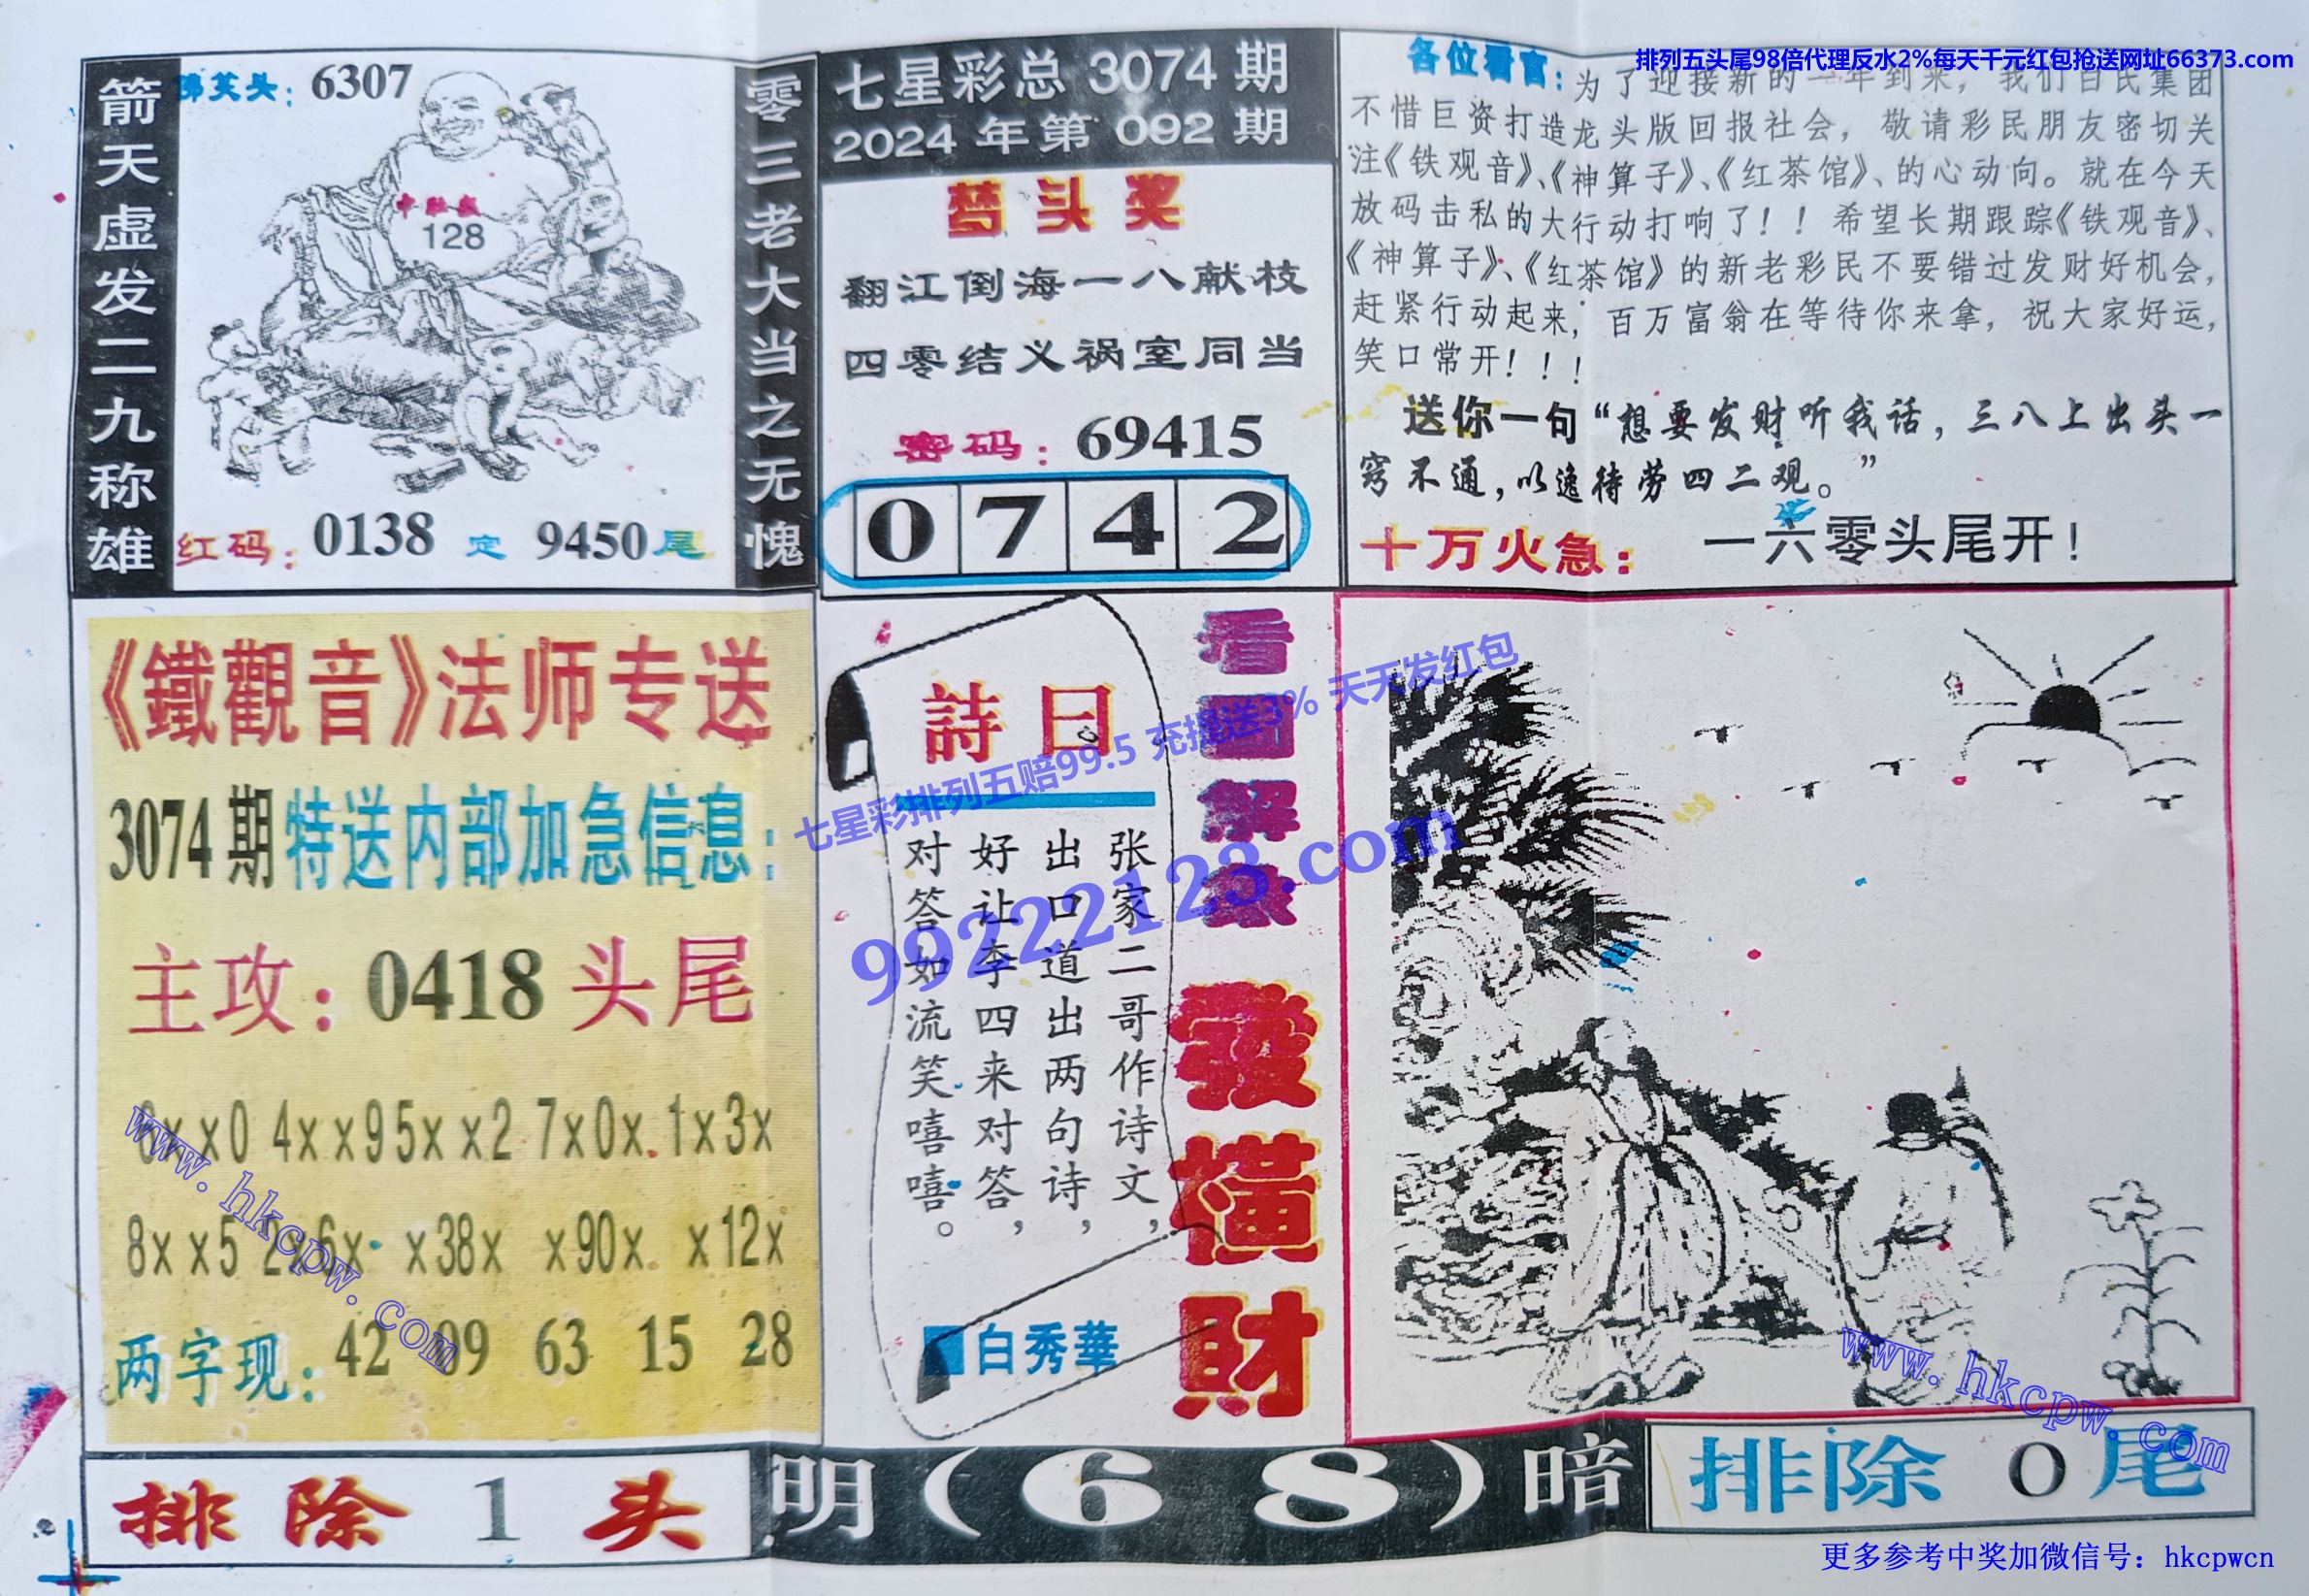 排列五头尾98倍代理反水2%每天千元红包抢送网址66373.com
箭天虚发二九称雄
佛笑头：6307
128
红码：0138 定 9450尾
零三老大当之无愧
七星彩总3074期
2024年第092期
梦头奖
翻江倒海一八献枝
四零结义祸室同当
密码：69415
0 7 4 2
各位看官：为了迎接新的一年到来，我们百民集团
不惜巨资打造龙头版回报社会，敬请彩民朋友密切关
注《铁观音》、《神算子》、《红茶馆》、的心动向。就在今天
放码击私的大行动打响了！！希望长期跟踪《铁观音》、
《神算子》、《红茶馆》的新老彩民不要错过发财好机会，
赶紧行动起来，百万富翁在等待你来拿，祝大家好运，
笑口常开！！！
送你一句“想要发财听我话，三八上出头一
窍不通，以逸待劳四二观。”
十万火急：一六零头尾开！
《鐵觀音》法师专送
3074期特送内部加急信息：
主攻：0418头尾
6xx0 4xx9 5xx2 7x0x 1x3x
8xx5 2x6x x38x x90x x12x
两字现：42 09 63 15 28
詩曰
张家二哥作诗文，
出口道出两句诗，
好让李四来对答，
对答如流笑嘻嘻。
白秀華
看圖解象
發橫財
七星彩排列五赔99.5 充提送3% 天天发红包
99222123.com
www.hkcpw.com
www.hkcpw.com
排除1头
明（68）暗
排除0尾
更多参考中奖加微信号：hkcpwcn